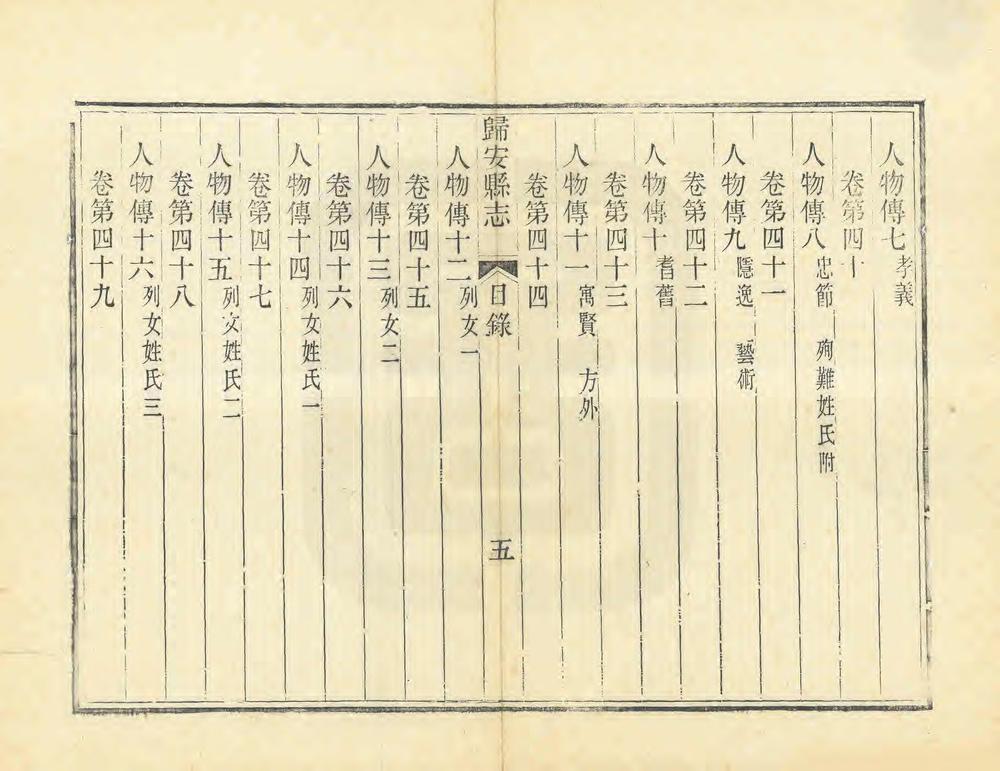 人物傳七 孝義
卷第四十
人物傳八 忠節 殉難姓氏附
卷第四十一
人物傳九 隱逸 藝術
卷第四十二
人物傳十 耆舊
卷第四十三
人物傳十一 寓賢 方外
卷第四十四
歸安縣志 目錄 五
人物傳十二 列女一
卷第四十五
人物傳十三 列女二
卷第四十六
人物傳十四 列女姓氏一
卷第四十七
人物傳十五 列女姓氏二
卷第四十八
人物傳十六 列女姓氏三
卷第四十九